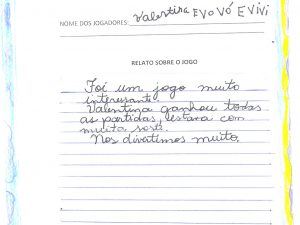 NOME DOS JOGADORES Valentina E Vovó E Vivi
RELATO SOBRE O JOGO
Foi um jogo muito
interessante.
Valentina ganhou todas
as partidas, estava com
muita sorte.
Nos divertimos muito.